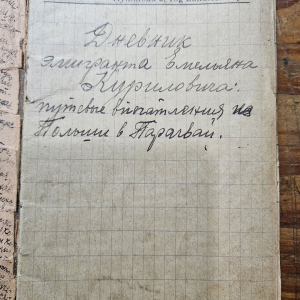 Дневник
эмигранта Емельяна
Куриловича:
путевые впечатления из
Польши в Парагвай.